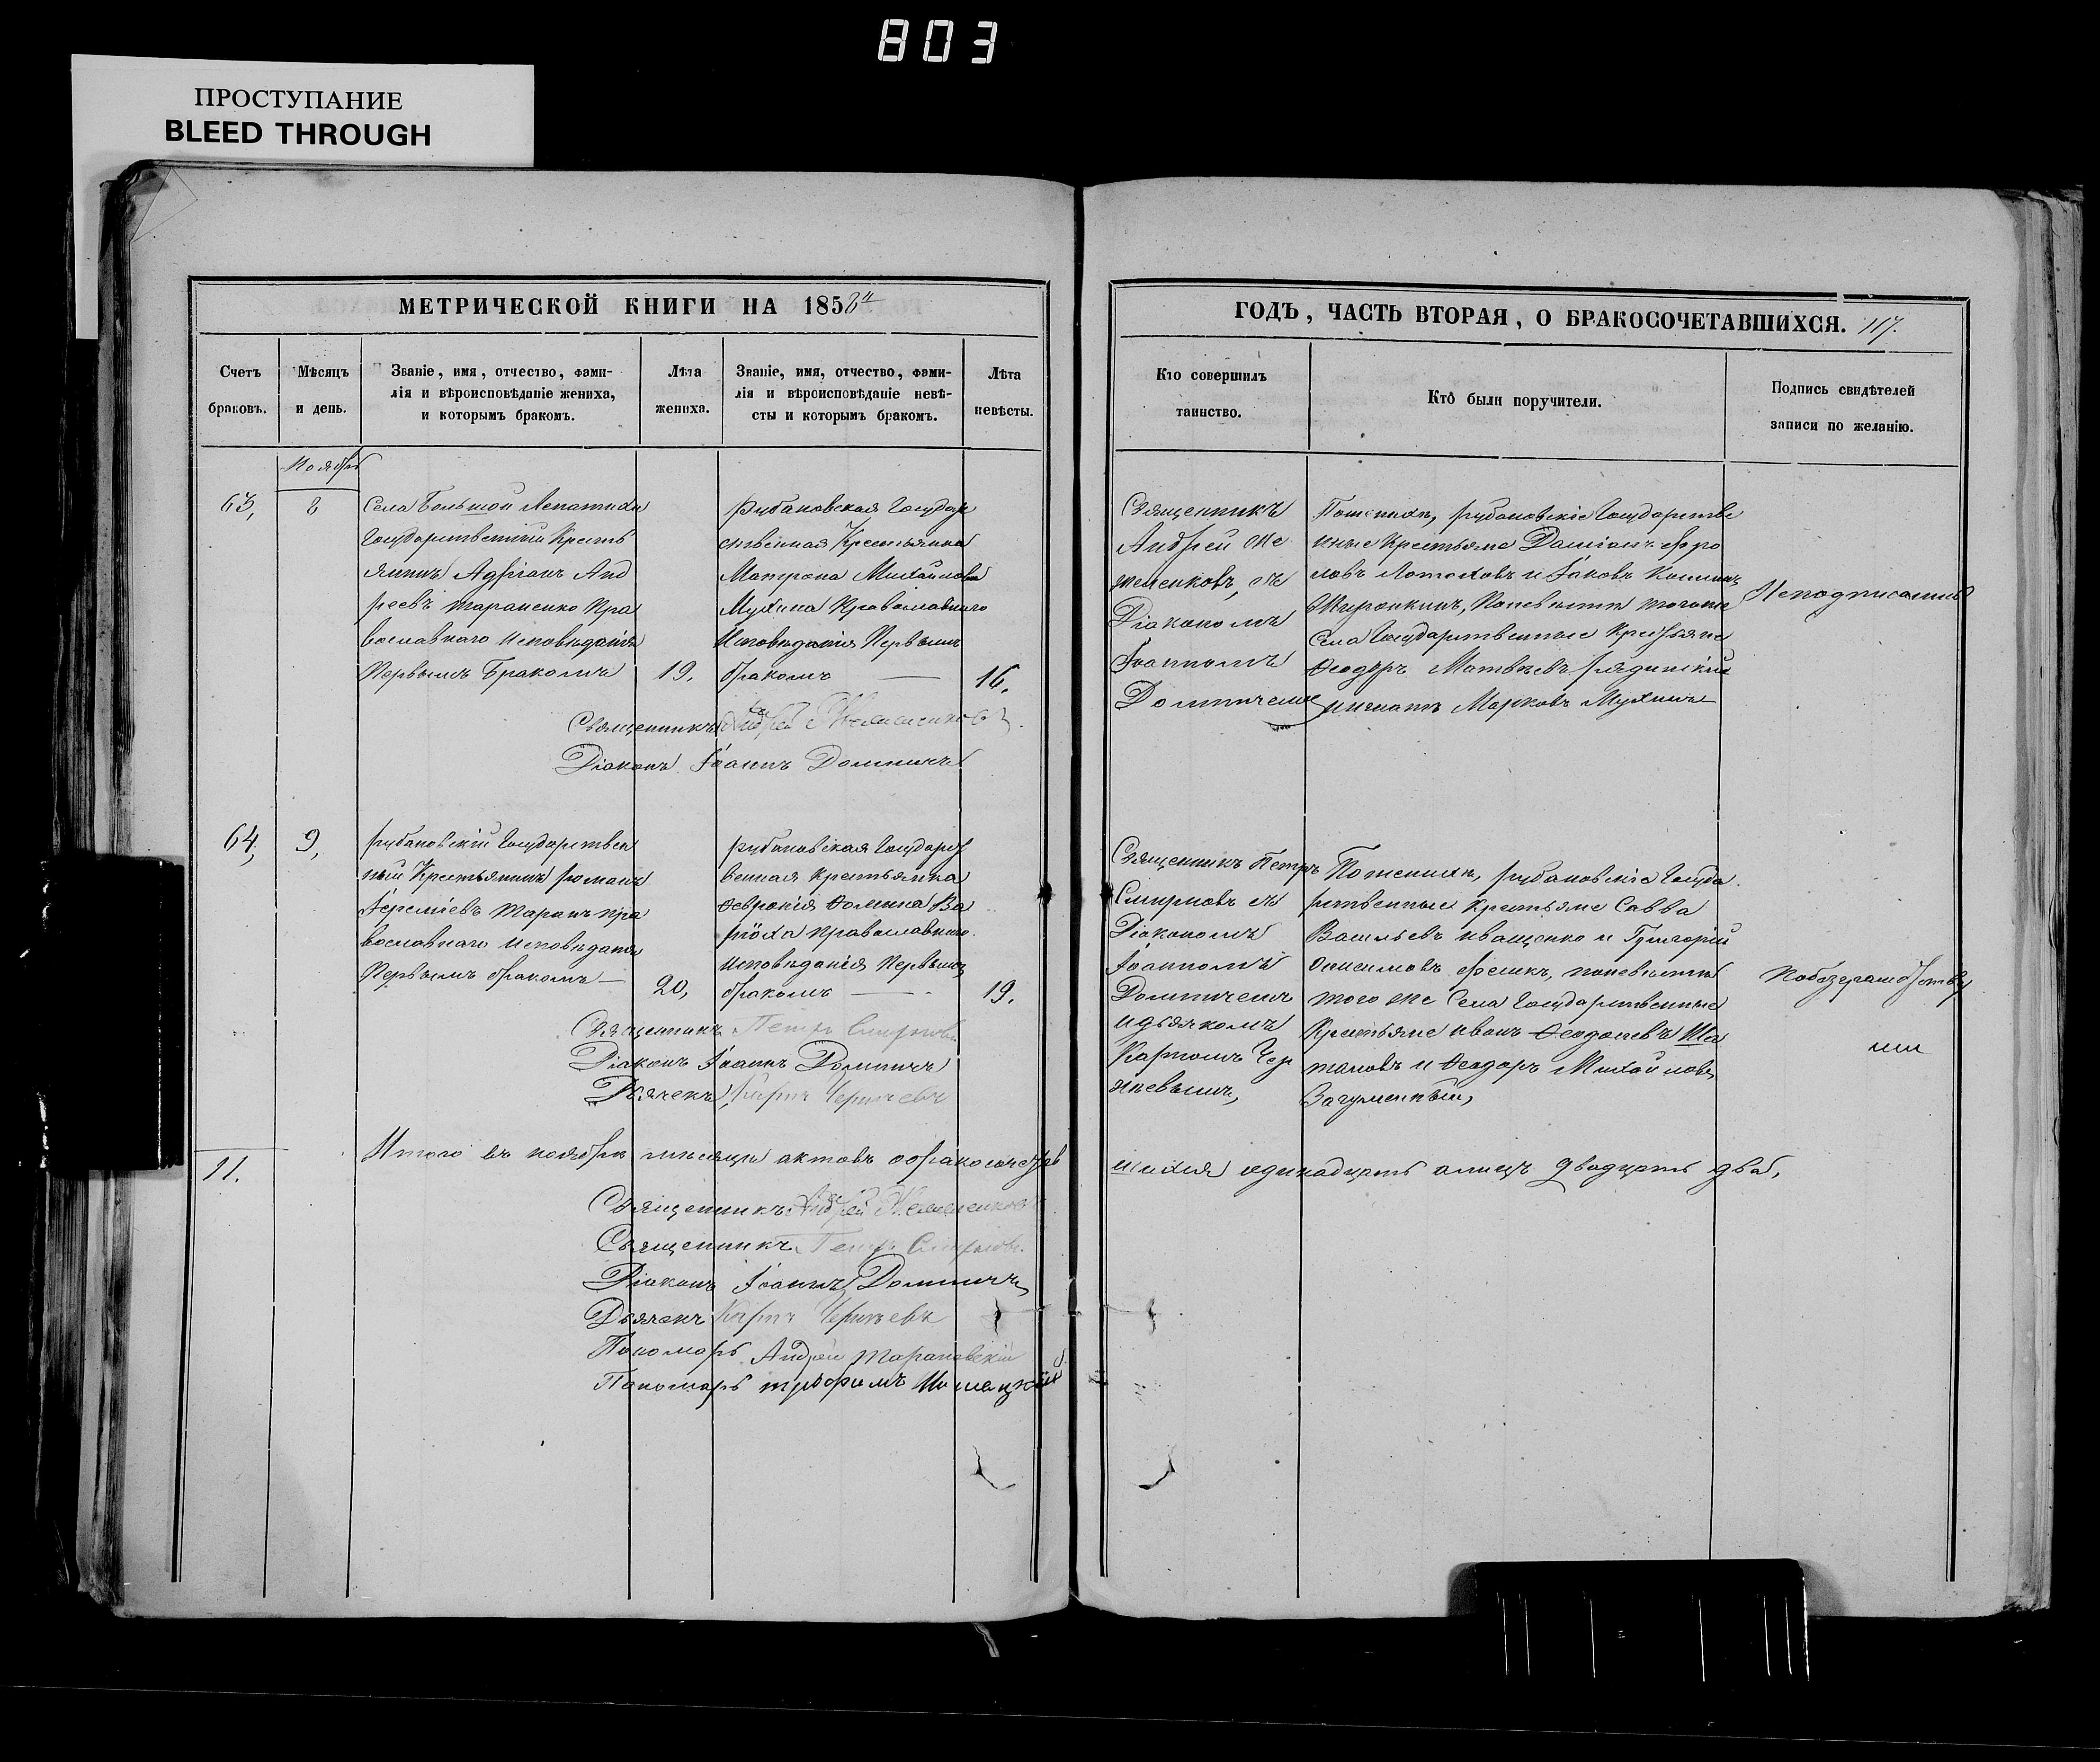 803
ПРОСТУПАНИЕ
BLEED THROUGH
МЕТРИЧЕСКОЙ КНИГИ НА 1858й
Счетъ браковъ.
Мѣсяцъ и день.
Званіе, имя, отчество, фами-
лія и вѣроисповѣданіе жениха,
и которымъ бракомъ.
Лѣта жениха.
Званіе, имя, отчество, фами-
лія и вѣроисповѣданіе невѣ-
сты и которымъ бракомъ.
Лѣта невѣсты.
Ноябрь
63, 8
Села Большой Лепатихи
Государственный Кресть
янинъ Адріанъ Анд
реевъ Тараненко Пра
вославнаго Исповѣданія
Первымъ Бракомъ 19.
Рубановская Государ
ственная Крестьянка
Матрона Михайлова
Мухина Православнаго
Исповѣданія Первымъ
бракомъ — 16.
Священникъ Андрей
Діаконъ Іоаннъ Домничъ
64, 9,
Рубановскій Государствен
ный Крестьянинъ Романъ
Іереміевъ Таранъ пра
вославнаго Исповѣданія
Первымъ бракомъ — 20,
Рубановская Государст
венная Крестьянка
Ѳевронія Ѳомина Ва
Православнаго
Исповѣданія Первымъ
бракомъ — 19.
Священникъ Петръ Смирновъ
Діаконъ Іоаннъ Домничъ
Дьячекъ Карпъ Чернѣевъ
11.
Итого въ ноябрѣ мѣсяцѣ актовъ о бракосочетав
Священникъ Андрей
Священникъ Петръ Смирновъ
Діаконъ Іоаннъ Домничъ
Дьячекъ Карпъ Чернѣевъ
Пономарь Андрей Тарановскій
Пономарь Трофимъ
ГОДЪ, ЧАСТЬ ВТОРАЯ, О БРАКОСОЧЕТАВШИХСЯ. 117.
Кто совершилъ таинство.
Кто были поручители.
Подпись свидѣтелей
записи по желанію.
Священникъ
Андрей
съ
Діакономъ
Іоанномъ
Домничемъ
По женихѣ, Рубановскіе Государстве
нные Крестьяне Даміанъ Фро
ловъ и Іаковъ
По невѣстѣ тогоже
Села Государственные Крестьяне
Ѳеодоръ Матвѣевъ
Игнатъ Марковъ Мухинъ
Неподписались
Священникъ Петръ
Смирновъ съ
Діакономъ
Іоанномъ
Домничемъ
и дьякомъ
Карпомъ Чер
нѣевымъ,
По женихѣ, Рубановскіе Госуда
рственные Крестьяне Савва
Васильевъ Иващенко и Григорій
Онисимовъ по невѣстѣ
того же Села Государственные
Крестьяне Иванъ Ша
и Ѳеодоръ Михайловъ
Загуменный,
шихся одинадцать а лицъ двадцать два,